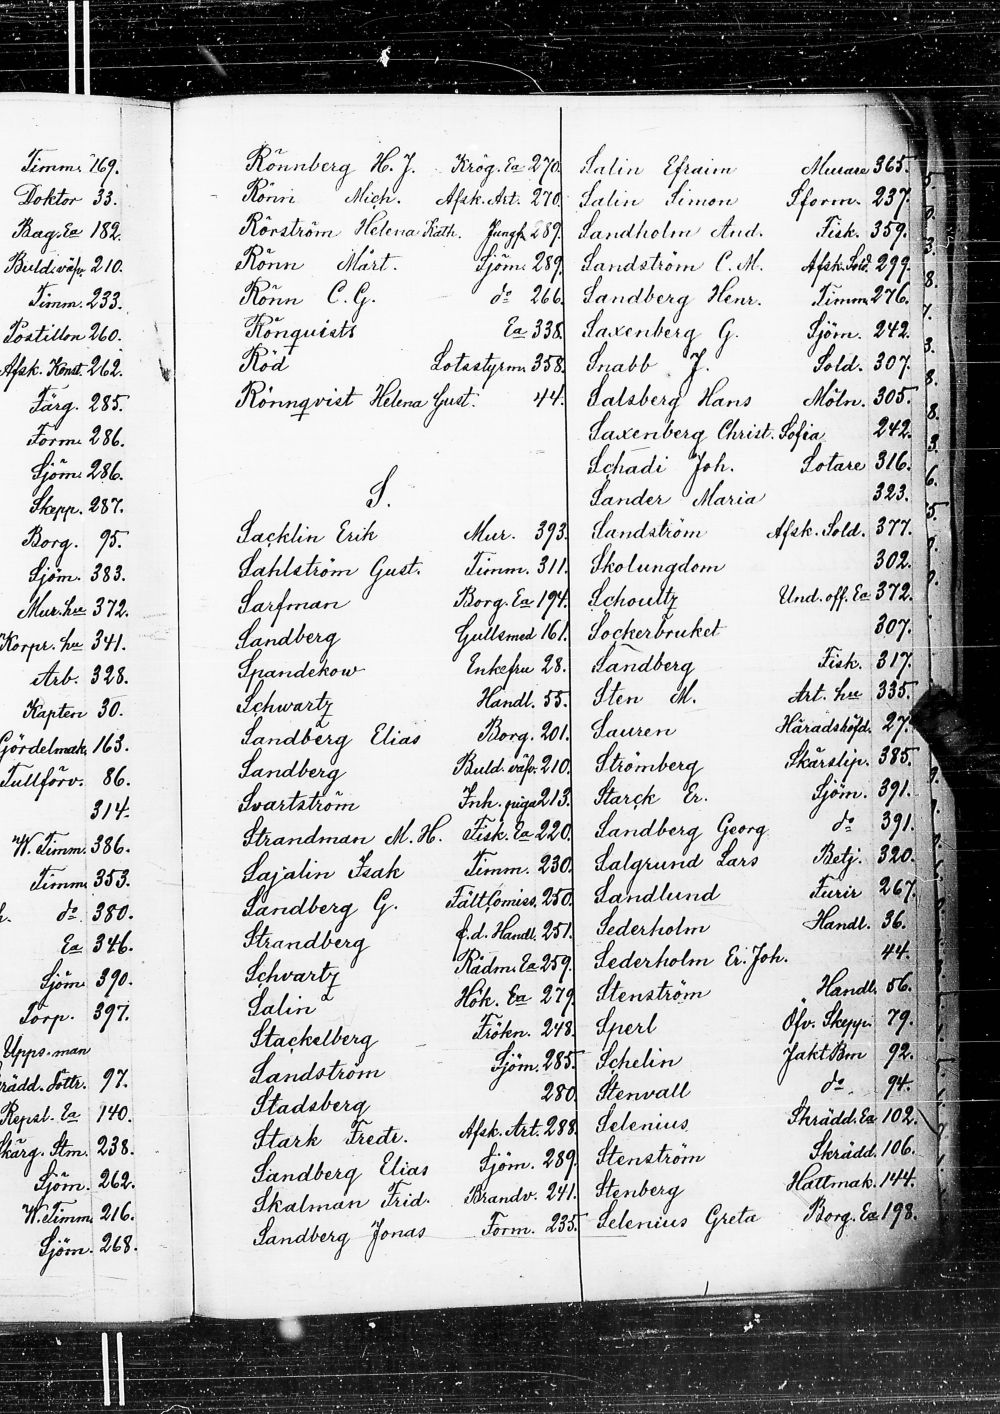 Timm. 169.
Doktor 33.
Bag. Ea 182.
Buld.väfv. 210.
Timm. 233.
Postillon 260.
Afsk. Konst. 262.
Färg. 285.
Form. 286.
Sjöm. 286.
Skepp. 287.
Borg. 95.
Sjöm. 383.
Mur. hu 372.
Korpr. hu 341.
Arb. 328.
Kapten 30.
Gördelmak. 163.
Tullförv. 86.
314.
W. Timm. 386.
Timm. 353.
do 380.
Ea 346.
Sjöm. 390.
Torp. 397.
Upps. man
Skrädd. Dottr. 97.
Repsl. Ea 140.
Skärg. Stm. 238.
Sjöm. 262.
W. Timm. 216.
Sjöm. 268.
Rönnberg H. J. Krög. Ea 270.
Rönn Mich. Afsk. Art. 270.
Rörström Helena Kath. Jungf. 289.
Rönn Mårt. Sjöm. 289.
Rönn C. G. do 266.
Rönquists Ea 338.
Röd Lotsstyrm. 358.
Rönnqvist Helena Gust. 44.
S.
Sacklin Erik Mur. 393.
Sahlström Gust. Timm. 311.
Sarfman Borg. Ea 194.
Sandberg Gullsmed 161.
Spandekow Enkefru 28.
Schwartz Handl. 55.
Sandberg Elias Borg. 201.
Sandberg Buld. väfv. 210.
Svartström Inh. piga 213.
Strandman M. H. Fisk. Ea 220.
Sajalin Isak Timm. 230.
Sandberg G. Fält Comiss. 250.
Strandberg f.d. Handl. 251.
Schvartz Rådm. Ea 259.
Salin Hök. Ea 279
Stackelberg Frökn. 248.
Sandström Sjöm. 285.
Stadsberg 280.
Stark Fredr. Afsk. Art. 288.
Sandberg Elias Sjöm. 289.
Skalman Frid. Brandv. 241.
Sandberg Jonas Form. 235.
Salin Efraim Murare 365.
Salin Simon Sform. 237.
Sandholm And. Fisk. 359.
Sandström C. M. Afsk. Sold. 299.
Sandberg Henr. Timm. 276.
Saxenberg G. Sjöm. 242.
Snabb J. Sold. 307.
Salsberg Hans Möln. 305.
Saxenberg Christ. Sofia 242.
Schadi Joh. Sotare 316.
Sander Maria 323.
Sandström Afsk. Sold. 377.
Skolungdom 302.
Schoultz Und. off. Ea 372.
Sockerbruket 307.
Sandberg Fisk. 317.
Sten M. Art. hu 335.
Sauren Häradshöfd. 27.
Strömberg Skärslip. 385.
Starck Er. Sjöm. 391.
Sandberg Georg do 391.
Salgrund Lars Betj. 320.
Sandlund Furir 267.
Sederholm Handl. 36.
Sederholm Er. Joh. 44.
Stenström Handl. 56.
Sperl Öfv. Skepp. 79.
Schelin Jakt Bm 92.
Stenvall do 94.
Selenius Skrädd. Ea 102.
Stenström Skrädd. 106.
Stenberg Hattmak. 144.
Selenius Greta Borg. Ea 198.